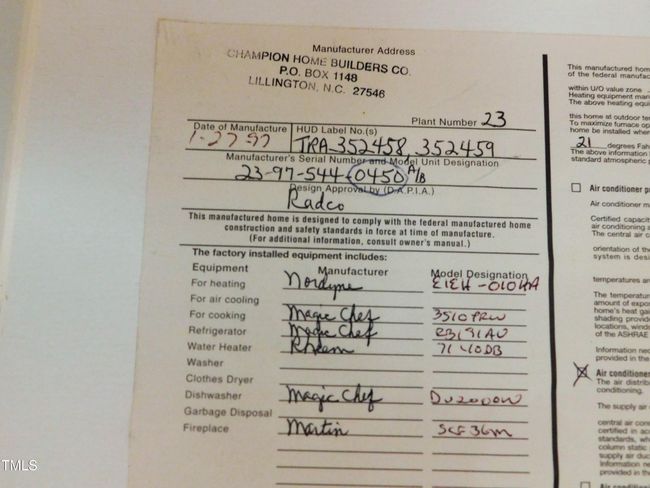 Manufacturer Address
CHAMPION HOME BUILDERS CO.
P.O. BOX 1148
LILLINGTON, N.C. 27546
Plant Number 23
Date of Manufacture HUD Label No.(s)
1-27-97 TRA 352458, 352459
Manufacturer's Serial Number and Model Unit Designation
23-97-544-0450 A/B
Design Approval by (D.A.P.I.A.)
Radco
This manufactured home is designed to comply with the federal manufactured home
construction and safety standards in force at time of manufacture.
(For additional information, consult owner's manual.)
The factory installed equipment includes:
Equipment Manufacturer Model Designation
For heating Nordyne E1EH-010HA
For air cooling
For cooking Magic Chef 3510PRW
Refrigerator Magic Chef RB191AV
Water Heater Rheem 7140DB
Washer
Clothes Dryer
Dishwasher Magic Chef DU2000W
Garbage Disposal
Fireplace Martin SCF36M
This manufactured hom
of the federal manufac
within U/O value zone
Heating equipment man
The above heating equi
this home at outdoor te
To maximize furnace op
home be installed where
21 degrees Fah
The above information
standard atmospheric p
Air conditioner p
Air conditioner m
Certified capacit
air conditioning a
The central air c
orientation of the
system is desi
temperatures an
The temperatur
amount of expos
home's heat gai
shading provide
locations, windo
of the ASHRAE
Information nec
provided in the
Air conditioner
The air distrib
The supply air
central air con
certified in acc
standards, wh
column static
supply air duc
Information ne
provided in th
TMLS